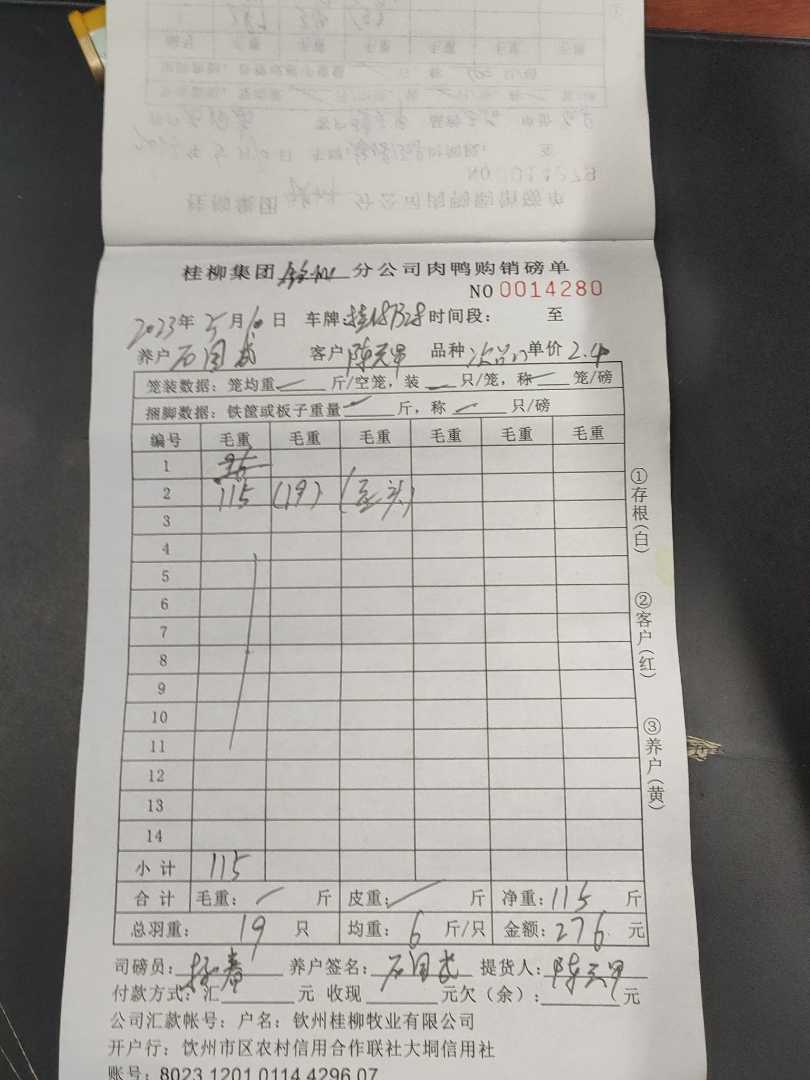 桂柳集团 钦州 分公司肉鸭购销磅单
NO 0014280
2023年5月10日 车牌: 时间段: 至
养户 石国武 客户 陈天甲 品种 次品 单价 2.4
笼装数据: 笼均重 斤/空笼, 装 只/笼, 称 笼/磅
捆脚数据: 铁筐或板子重量 斤, 称 只/磅
编号 毛重 毛重 毛重 毛重 毛重 毛重
1
2 115 (19)
3
4
5
6
7
8
9
10
11
12
13
14
小计 115
合计 毛重: 斤 皮重: 斤 净重: 115 斤
总羽重: 19 只 均重: 6 斤/只 金额: 276 元
司磅员: 养户签名: 石国武 提货人: 陈天甲
付款方式: 汇 元 收现 元欠(余): 元
公司汇款帐号: 户名: 钦州桂柳牧业有限公司
开户行: 饮州市区农村信用合作联社大垌信用社
账号: 8023 1201 0114 4296 07
①存根(白)
②客户(红)
③养户(黄)